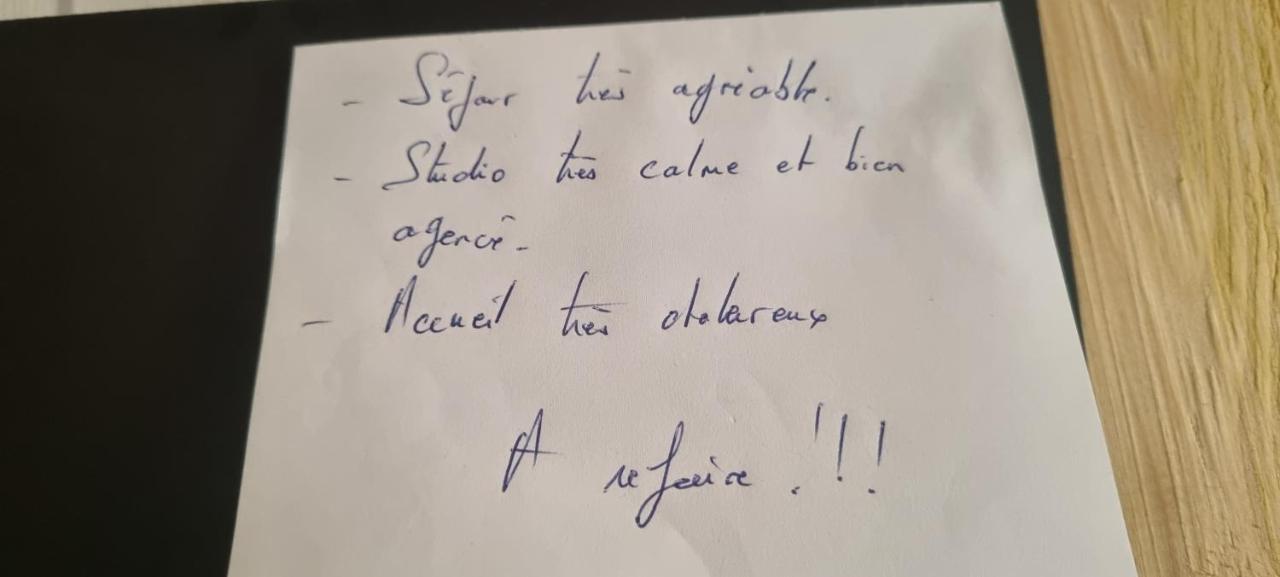 - Séjour très agréable.
- Studio très calme et bien
agencé.
- Accueil très chaleureux
A refaire !!!